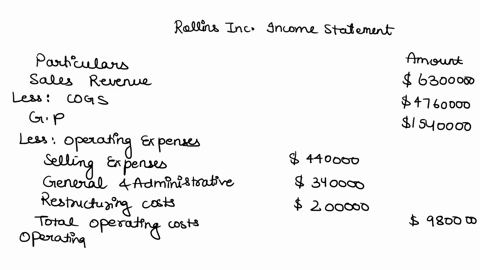 Rollins Inc. Income Statement
Particulars Amount
Sales Revenue $6300000
Less: COGS $4760000
G.P $1540000
Less: Operating Expenses
Selling Expenses $440000
General & Administrative $340000
Restructuring costs $200000
Total operating costs $980000
Operating